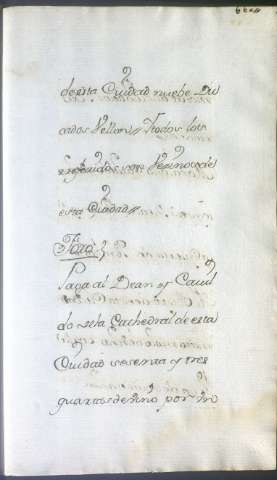 de esta Ciudad nuebe Du
cados Vellon; Y todos los
referidos son Vezinos de
esta Ciudad
Ittⁿ
Paga al Dean y Cavil
do de la Cathedral de esta
Ciudad sesenta y tres
quartos de